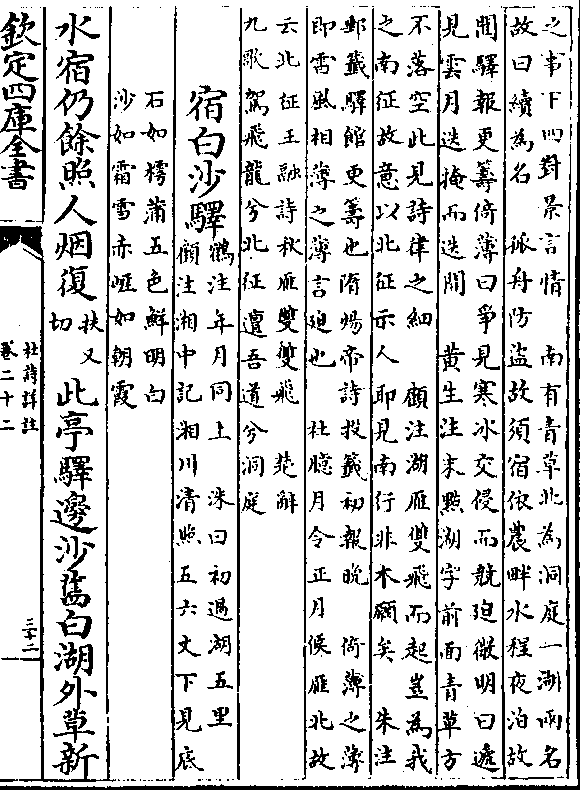 之事下四對景言情　南有青草北為洞庭一湖兩名
故曰續為名　孤舟防盜故須宿依農畔水程夜泊故
聞驛報更籌倚薄曰爭見寒冰交侵而競迫微明曰遞
見雲月迭掩而迭開　黃生注末點湖字前面青草方
不落空此見詩律之細　顧注湖雁雙飛而起豈為我
之南征故意以北征示人耶見南行非本願矣　朱注
郵籤驛館更籌也隋煬帝詩投籤初報晚　倚薄之薄
即雷風相薄之薄言迫也　杜臆月令正月候雁北故
云北征王融詩秋雁雙雙飛　楚辭
九歌駕飛龍兮北征邅吾道兮洞庭
宿白沙驛
鶴注年月同上　洙曰初過湖五里
顧注湘中記湘川清照五六丈下見底
石如樗蒲五色鮮明白
沙如霜雪赤崖如朝霞
水宿仍餘照人烟復扶又切此亭驛邊沙舊白湖外草新
欽定四庫全書
杜詩詳註
卷二十二
三十二